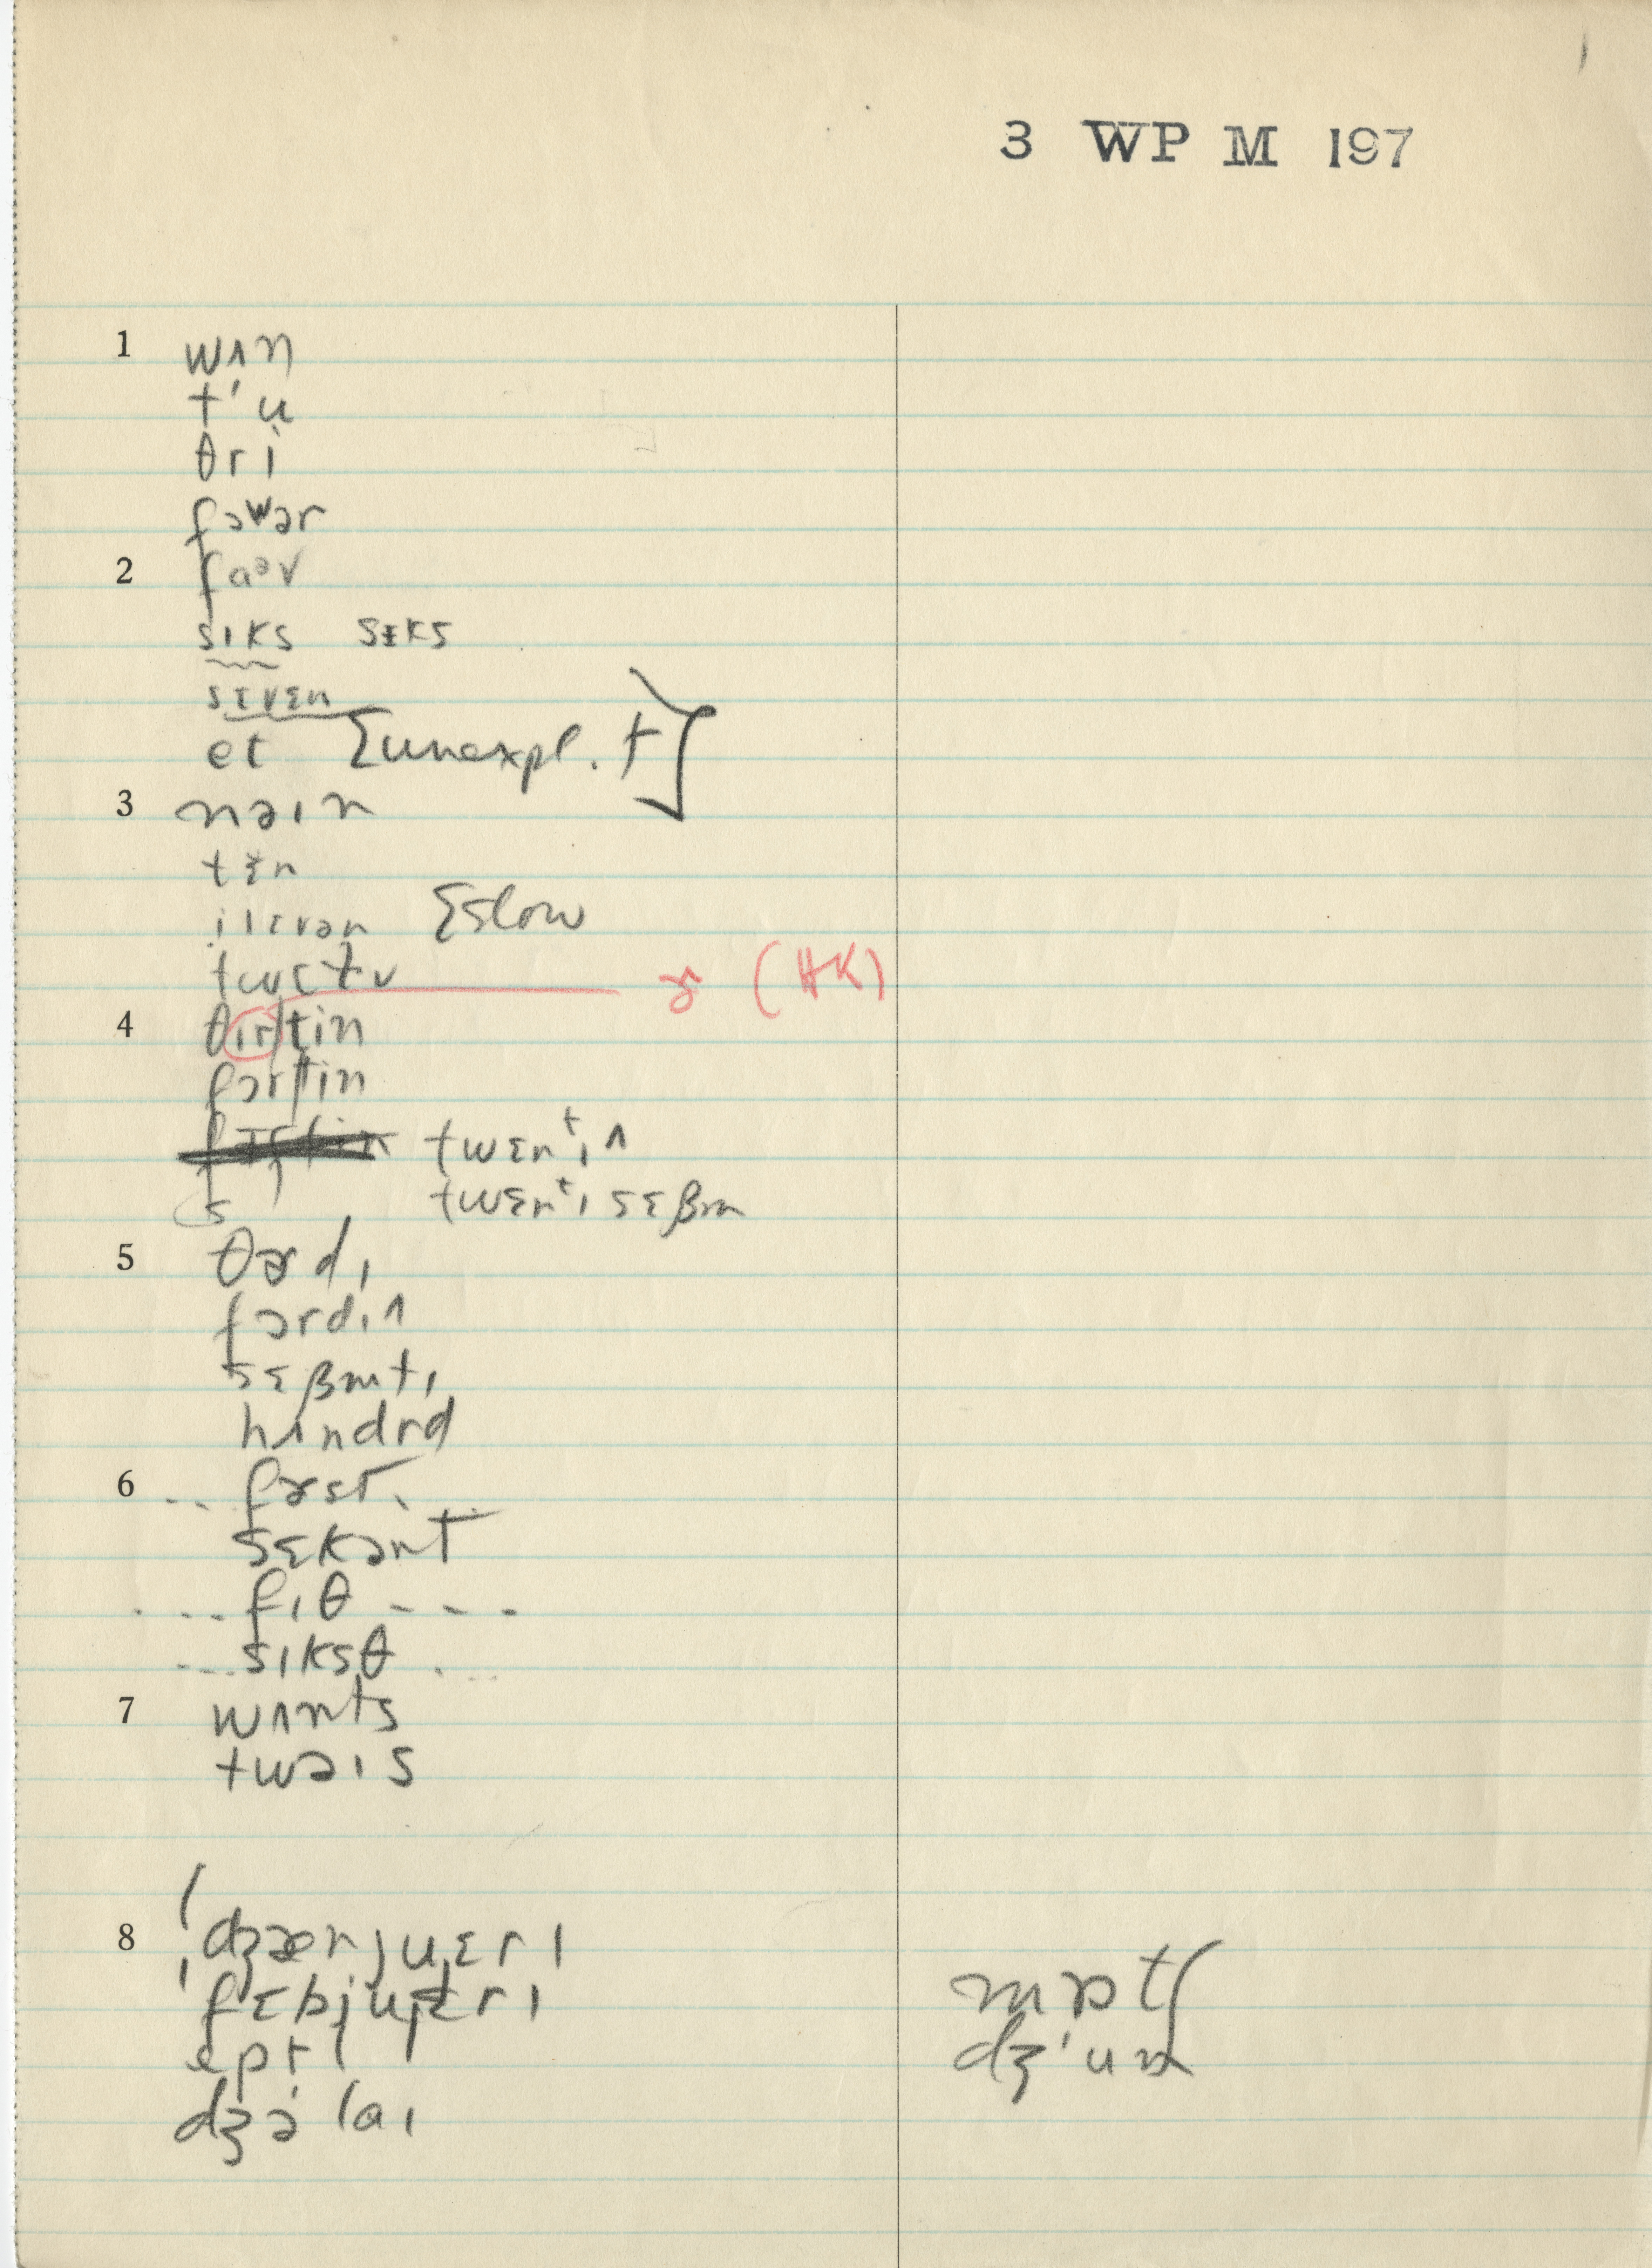 3 WP M 197
1 wʌn
t'u
θri
fɔwər
2 faəv
sɪks sɪks
sɛvɛn
et [unexpl. t]
3 nəɪn
tɛn
ilɛvən [slow
ɚ (HK)
4 θirtin
fɔrtin
twɛntɪ ʌ
twɛntɪ sɛβm
5 θɚdɪ
fɔrdɪ ʌ
sɛβmtɪ
hʌndrd
6 .. fɚst ..
sɛkənt
... fɪθ ---
... sɪksθ ...
7 wʌnts
twəɪs
8 ˈdʒænjuɛrɪ
mɒtʃ
eprɪl
dʒəlaɪ